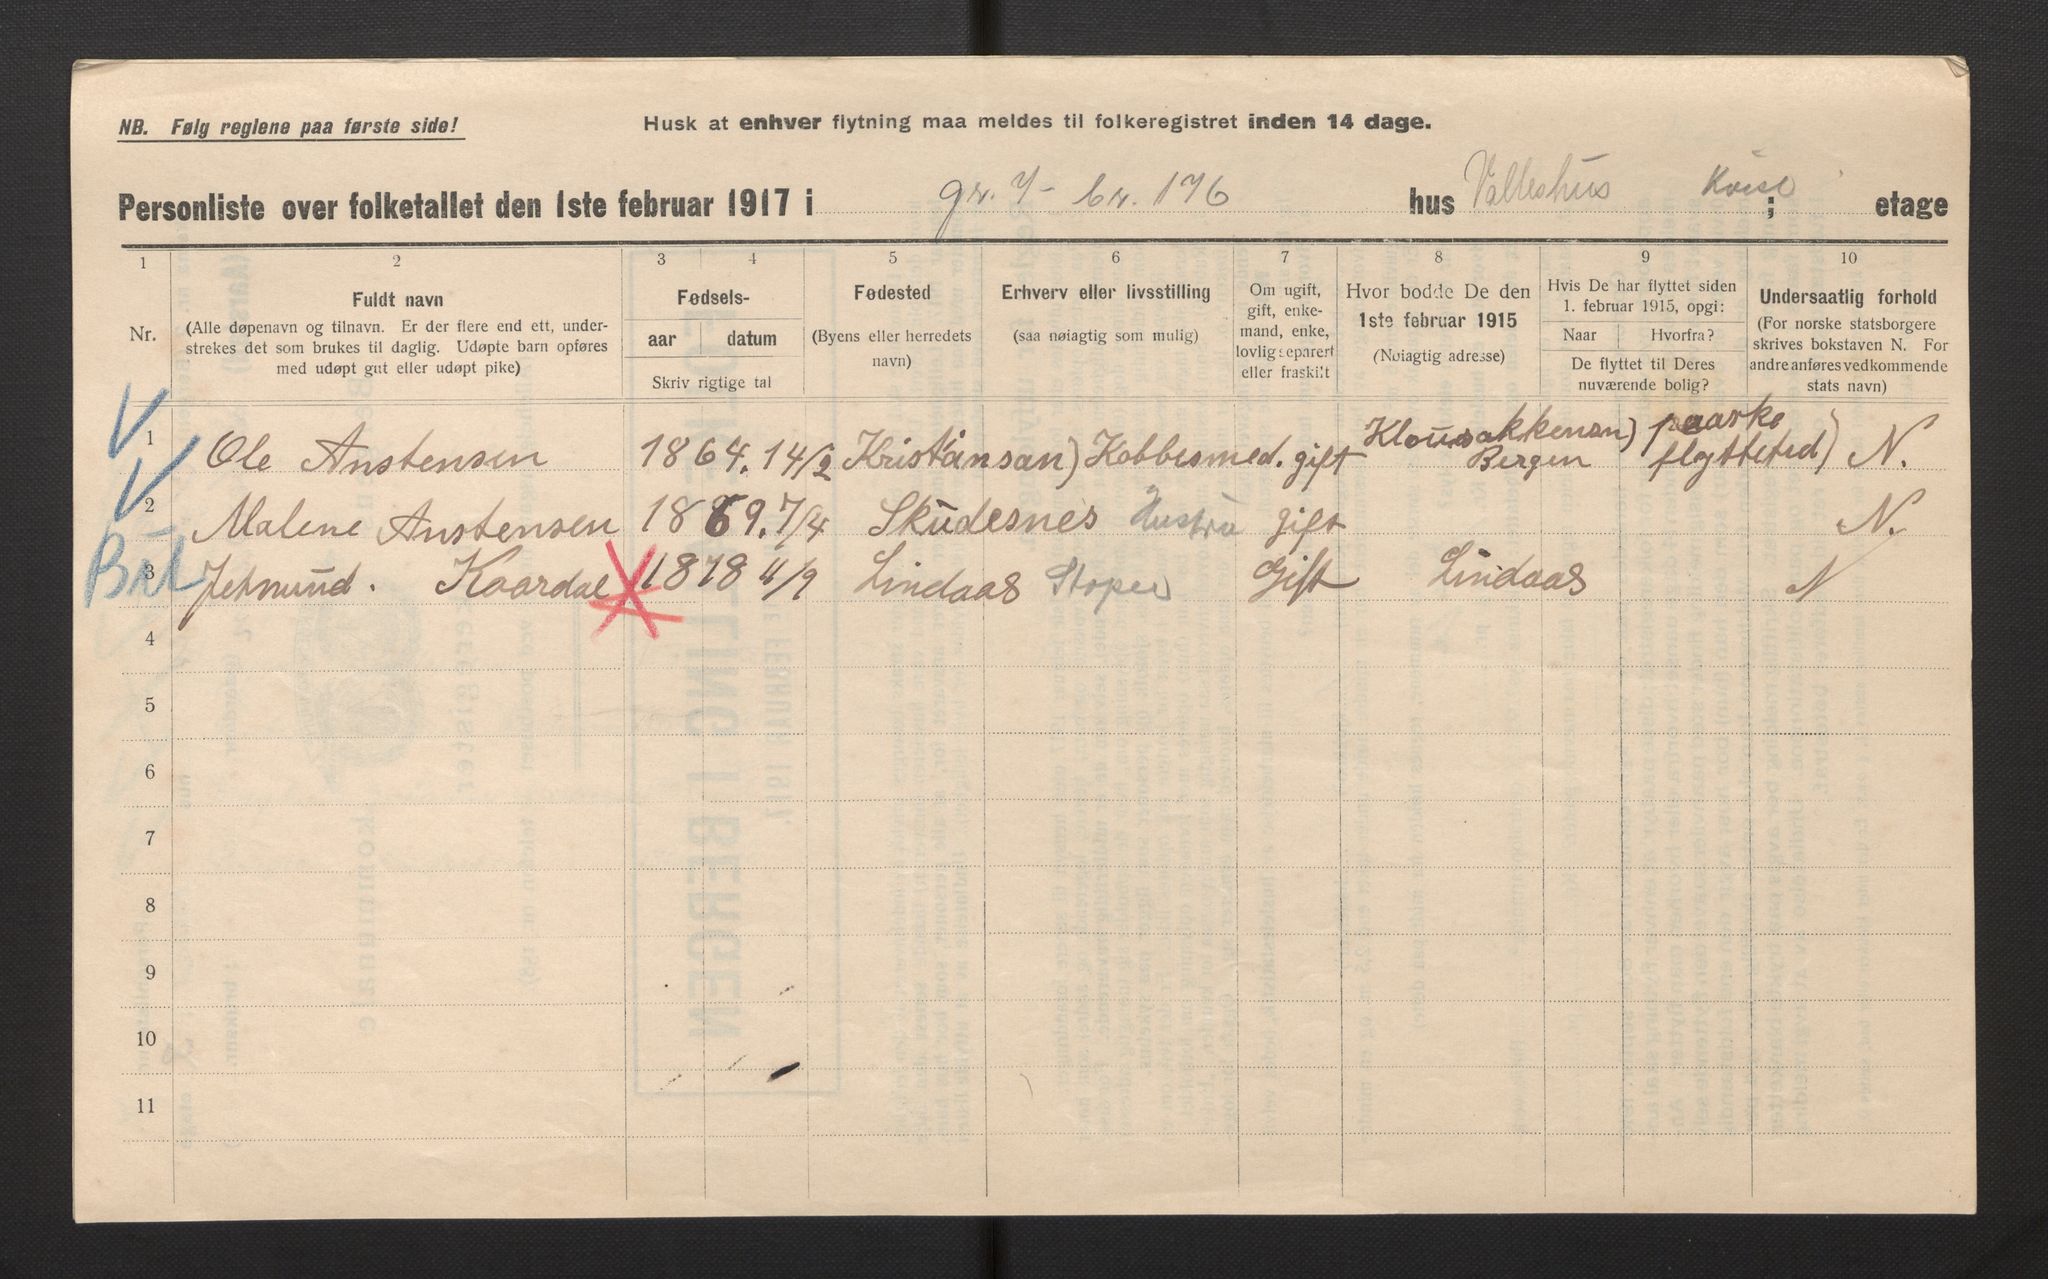 NB. Følg reglene paa første side!
Husk at enhver flytning maa meldes til folkeregistret inden 14 dage.
Personliste over folketallet den 1ste februar 1917 i gr. 7 - br. 176 hus Valleshus ; etage
1 2 3 4 5 6 7 8 9 10
Nr.
Fuldt navn
(Alle døpenavn og tilnavn. Er der flere end ett, under-
strekes det som brukes til daglig. Udøpte barn opføres
med udøpt gut eller udøpt pike)
Fødsels-
aar datum
Skriv rigtige tal
Fødested
(Byens eller herredets
navn)
Erhverv eller livsstilling
(saa nøiagtig som mulig)
Om ugift,
gift, enke-
mand, enke,
lovlig separert
eller fraskilt
Hvor bodde De den
1ste februar 1915
(Nøiagtig adresse)
Hvis De har flyttet siden
1. februar 1915, opgi:
Naar Hvorfra?
De flyttet til Deres
nuværende bolig?
Undersaatlig forhold
(For norske statsborgere
skrives bokstaven N. For
andre anføres vedkommende
stats navn)
V 1 Ole Anstensen 1864. 14/2 Kristiansan) Kobbesmed. gift Bergen flyttested) N.
V 2 Malene Anstensen 1869. 7/4 Skudesnes Hustru gift N.
3 Jetmund. Kaardal X 1878 4/9 Lindaas Støper Gift Lindaas N
4
5
6
7
8
9
10
11